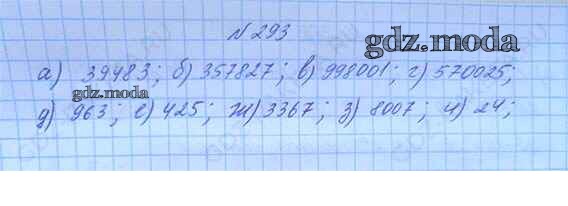 № 293
gdz.moda
а) 39483; б) 357827; в) 998001; г) 570025;
gdz.moda
д) 963; е) 425; ж) 3367; з) 8007; и) 24;